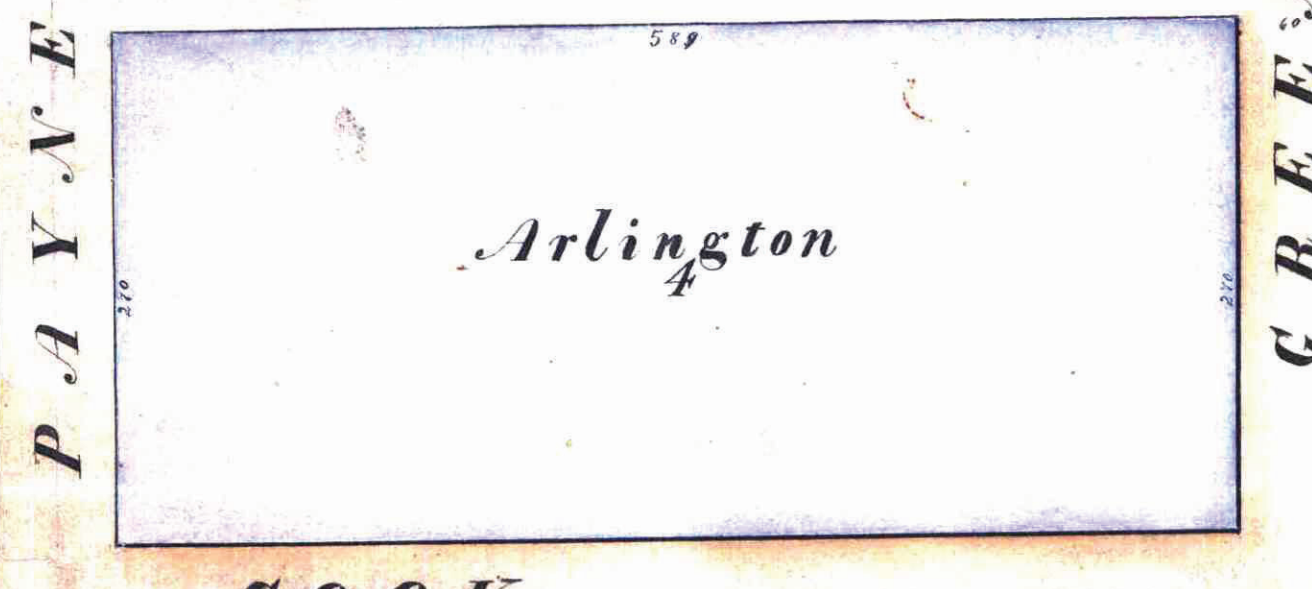 PAYNE
589
60
Arlington
4
270
270
GREE
COOK